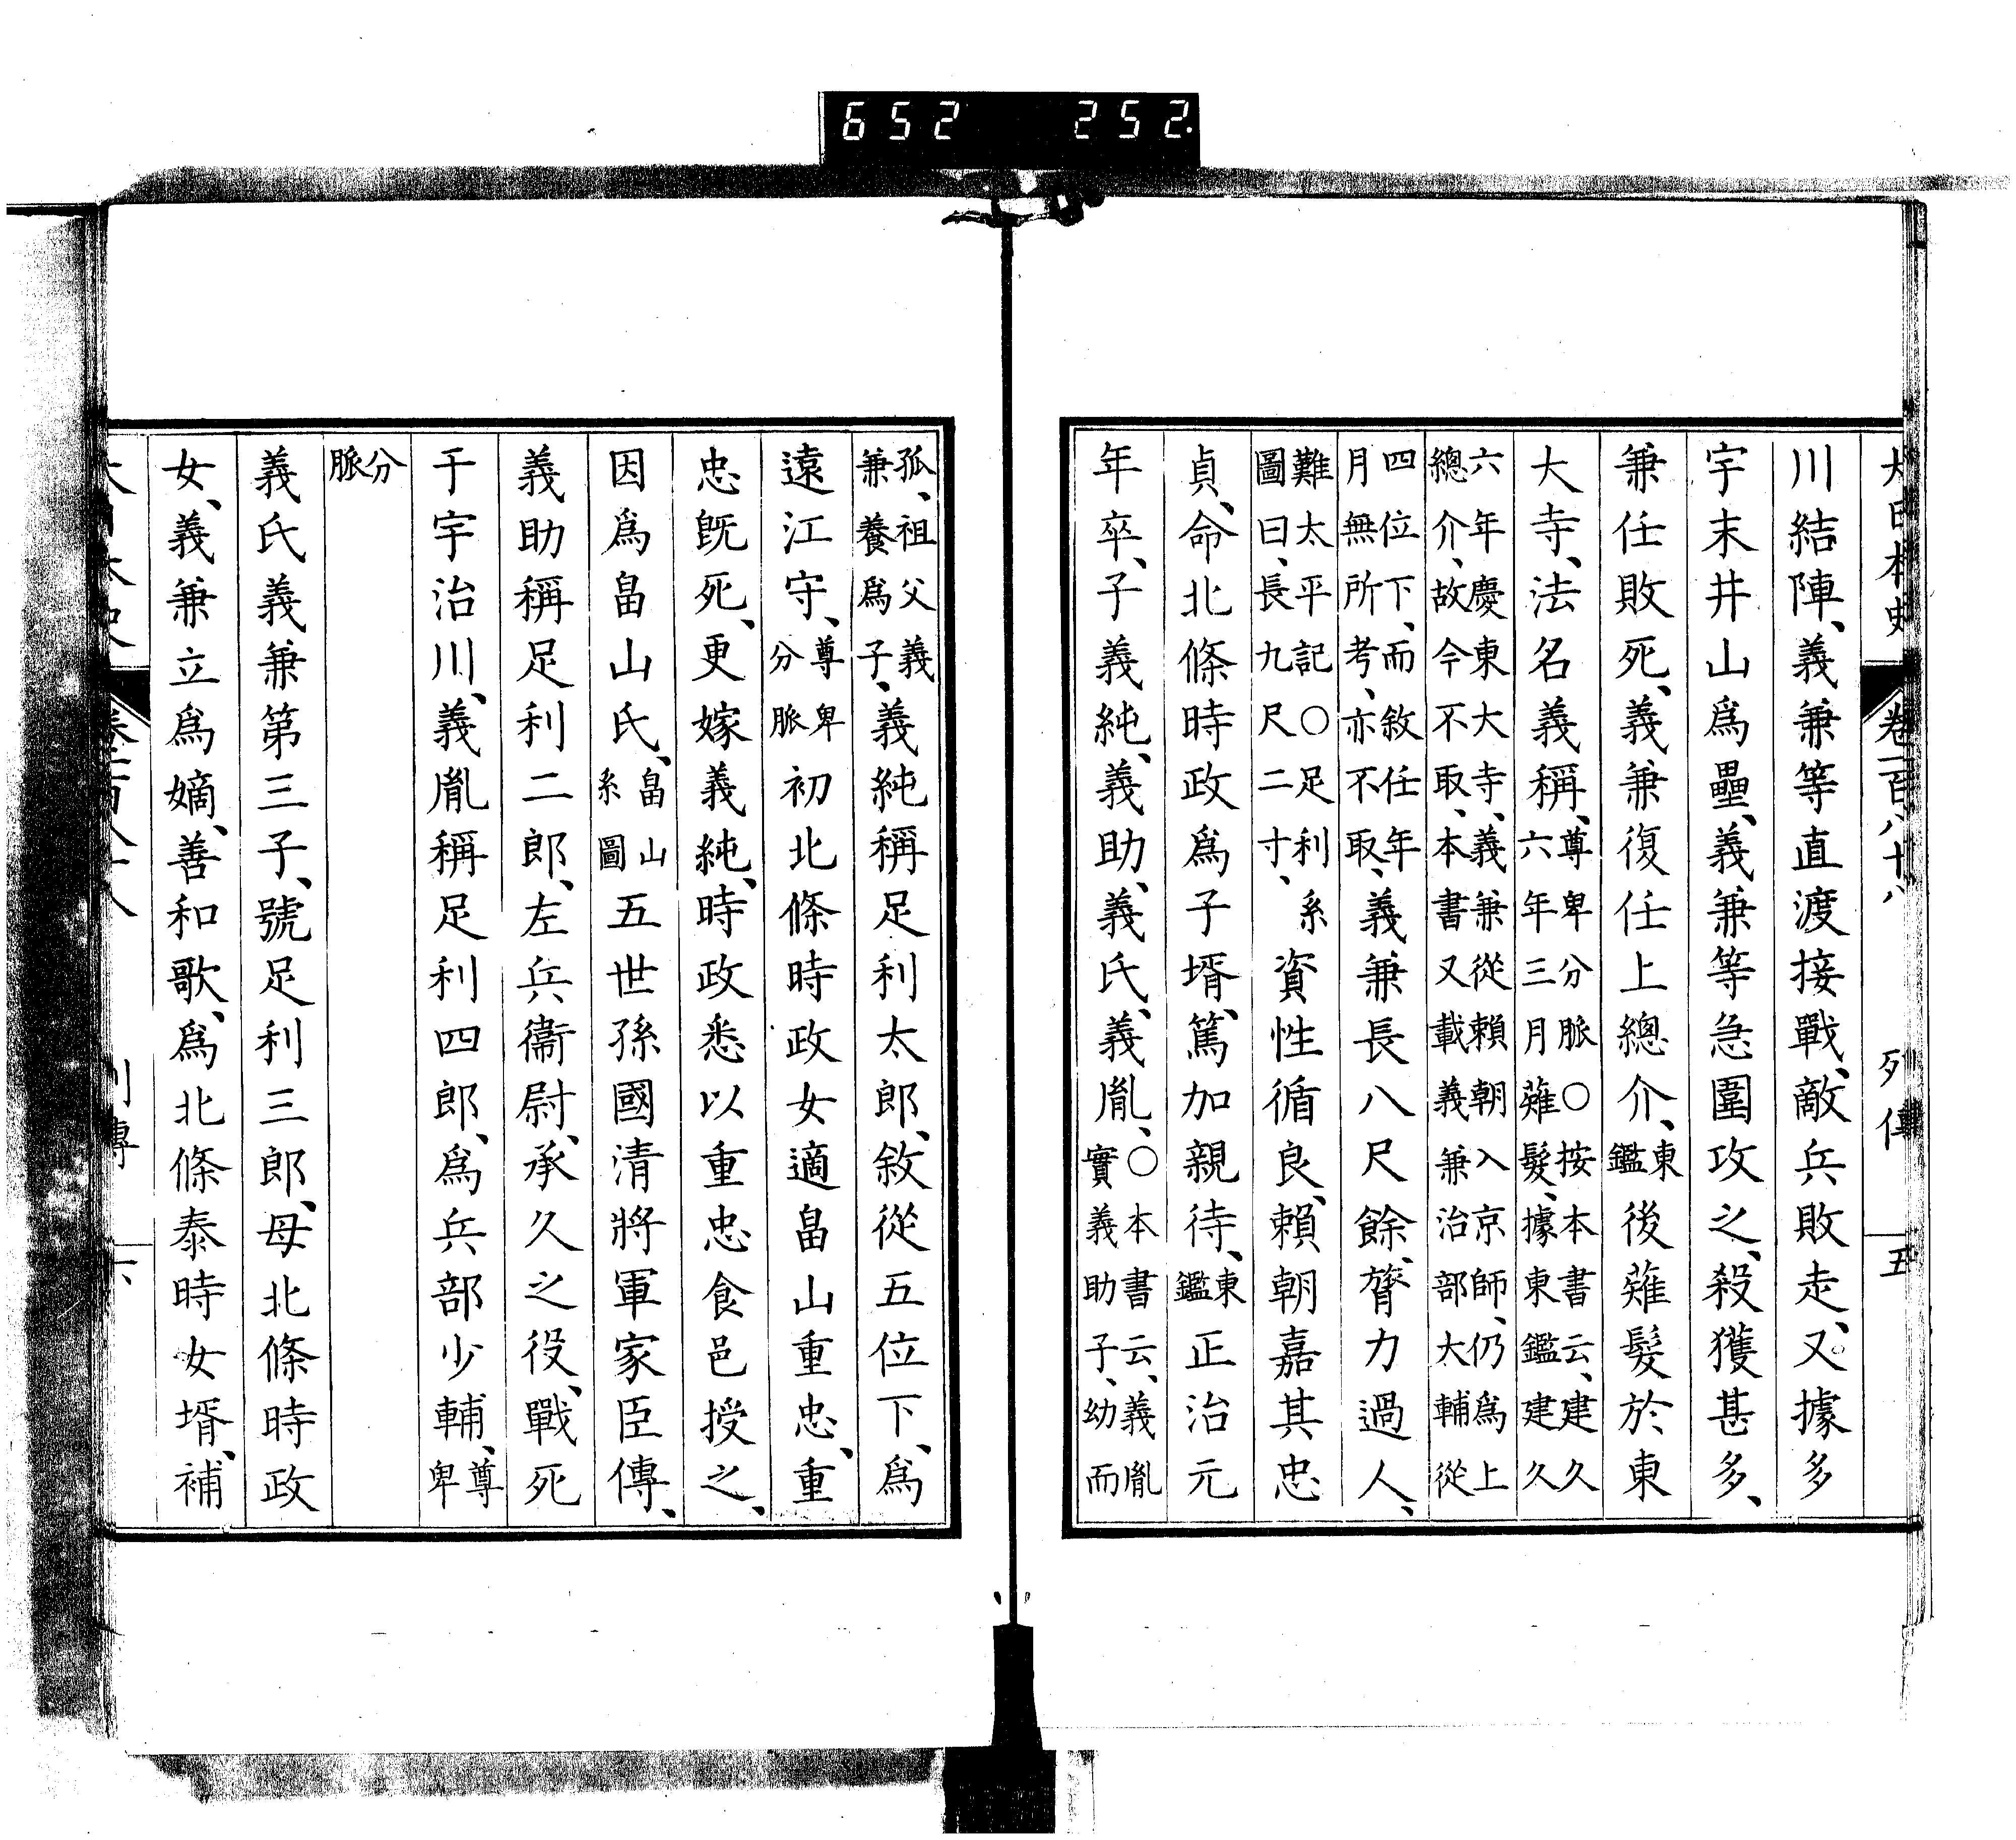 大日本史 卷一百八十八 列傳 五
川結陣、義兼等直渡接戰、敵兵敗走、又據多
宇末井山爲壘、義兼等急圍攻之、殺獲甚多、
兼任敗死、義兼復任上總介、東鑑後薙髮於東
大寺、法名義稱、尊卑分脈○按本書云、建久六年三月薙髮、據東鑑建久
六年慶東大寺、義兼從賴朝入京師、仍爲上總介、故今不取、本書又載義兼治部大輔從
四位下、而敘任年月無所考、亦不取、義兼長八尺餘、膂力過人、
難太平記○足利系圖曰、長九尺二寸、資性循良、賴朝嘉其忠
貞、命北條時政爲子壻、篤加親待、東鑑正治元
年卒、子義純、義助、義氏、義胤、○本書云、義胤實義助子、幼而
孤、祖父義兼養爲子、義純稱足利太郎、敘從五位下、爲
遠江守、尊卑分脈初北條時政女適畠山重忠、重
忠既死、更嫁義純、時政悉以重忠食邑授之、
因爲畠山氏、畠山系圖五世孫國清將軍家臣傳、
義助稱足利二郎、左兵衞尉、承久之役、戰死
于宇治川、義胤稱足利四郎、爲兵部少輔、尊卑
分脈
義氏義兼第三子、號足利三郎、母北條時政
女、義兼立爲嫡、善和歌、爲北條泰時女壻、補
652 252.